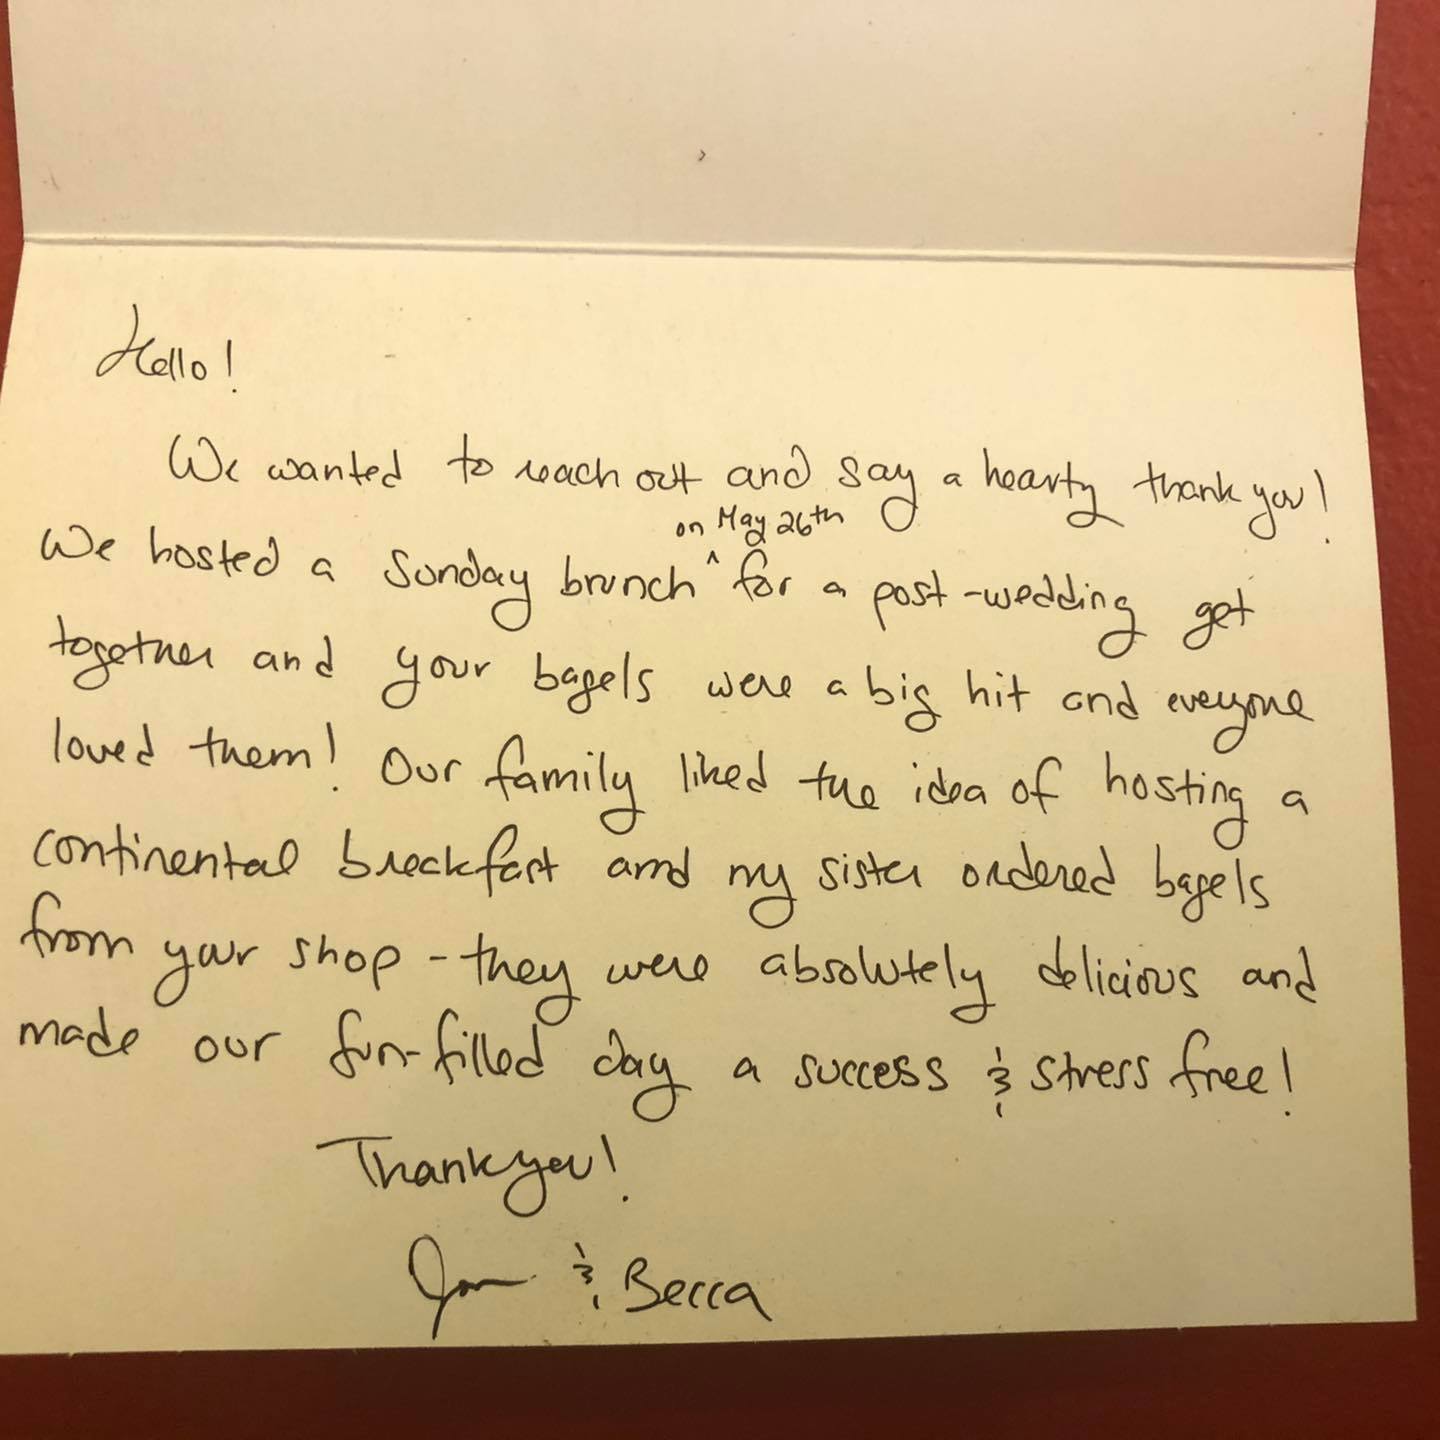 Hello!
We wanted to reach out and say a hearty thank you!
on May 26th
We hosted a Sunday brunch ^ for a post-wedding get
together and your bagels were a big hit and everyone
loved them! Our family liked the idea of hosting a
continental breakfast and my sister ordered bagels
from your shop - they were absolutely delicious and
made our fun-filled day a success & stress free!
Thank you!
& Becca